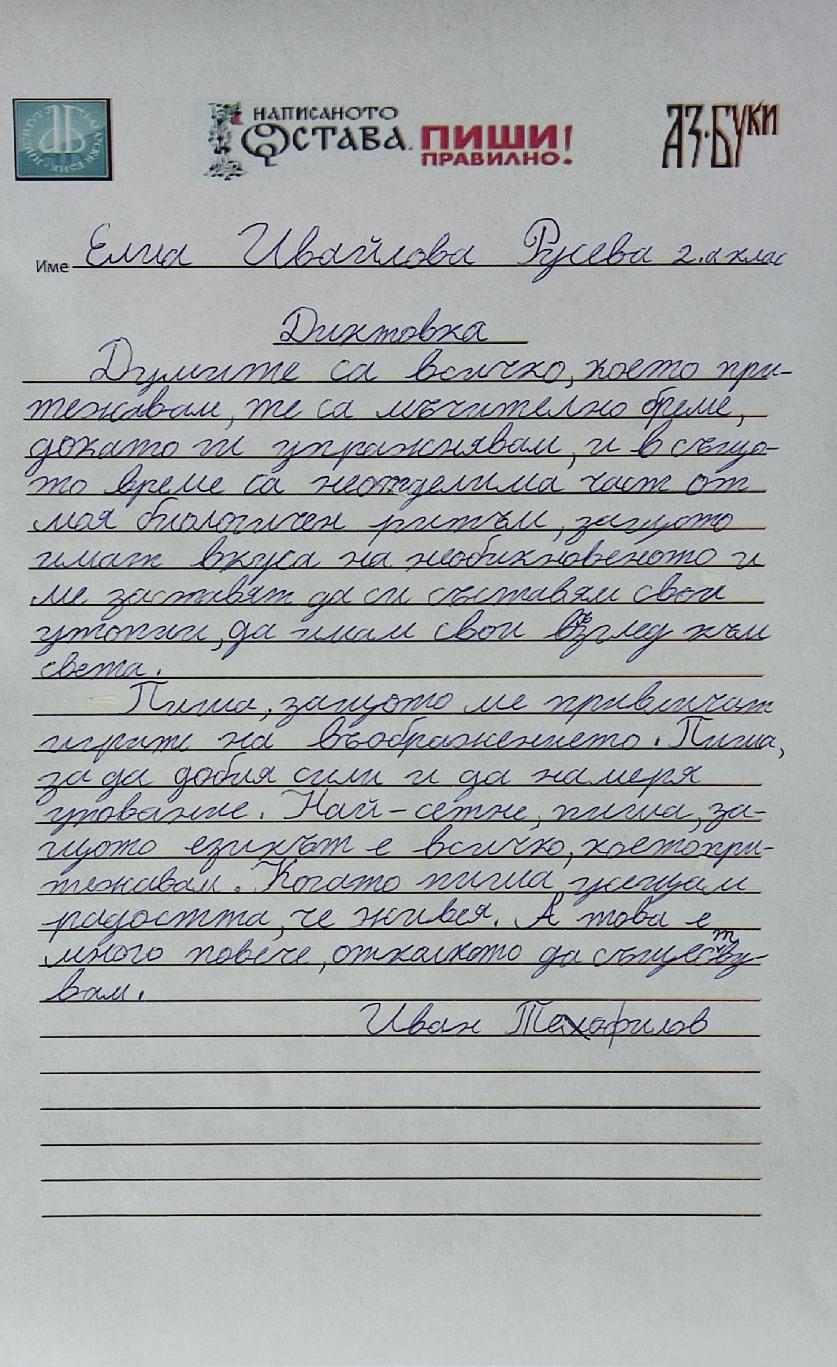 НАПИСАНОТО
ОСТАВА. ПИШИ!
ПРАВИЛНО!
АЗ·БУКИ
Име Елиа Ивайлова Русева 2.а клас
Диктовка
Думите са всичко, което при-
тежавам, те са мъчително бреме,
докато ги упражнявам, и в също-
то време са неотделима част от
моя биологичен ритъм, защото
имат вкуса на необикновеното и
ме заставят да си съставям свои
утопии, да имам свои възглед към
света.
Пиша, защото ме привличат
игрите на въображението. Пиша,
за да добия сили и да намеря
упование. Най-сетне, пиша, за-
щото езикът е всичко, което при-
тежавам. Когато пиша, усещам
радостта, че живея. А това е
много повече, отколкото да съществу-
вам.
Иван Теофилов